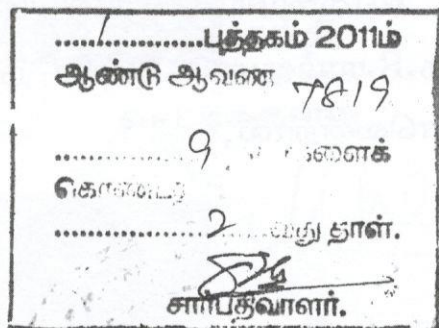 ....1..............புத்தகம் 2011ம்
ஆண்டு ஆவண 7819
..................9 களைக்
கொண்டது
..................2 வது தாள்.
சார்பதிவாளர்.